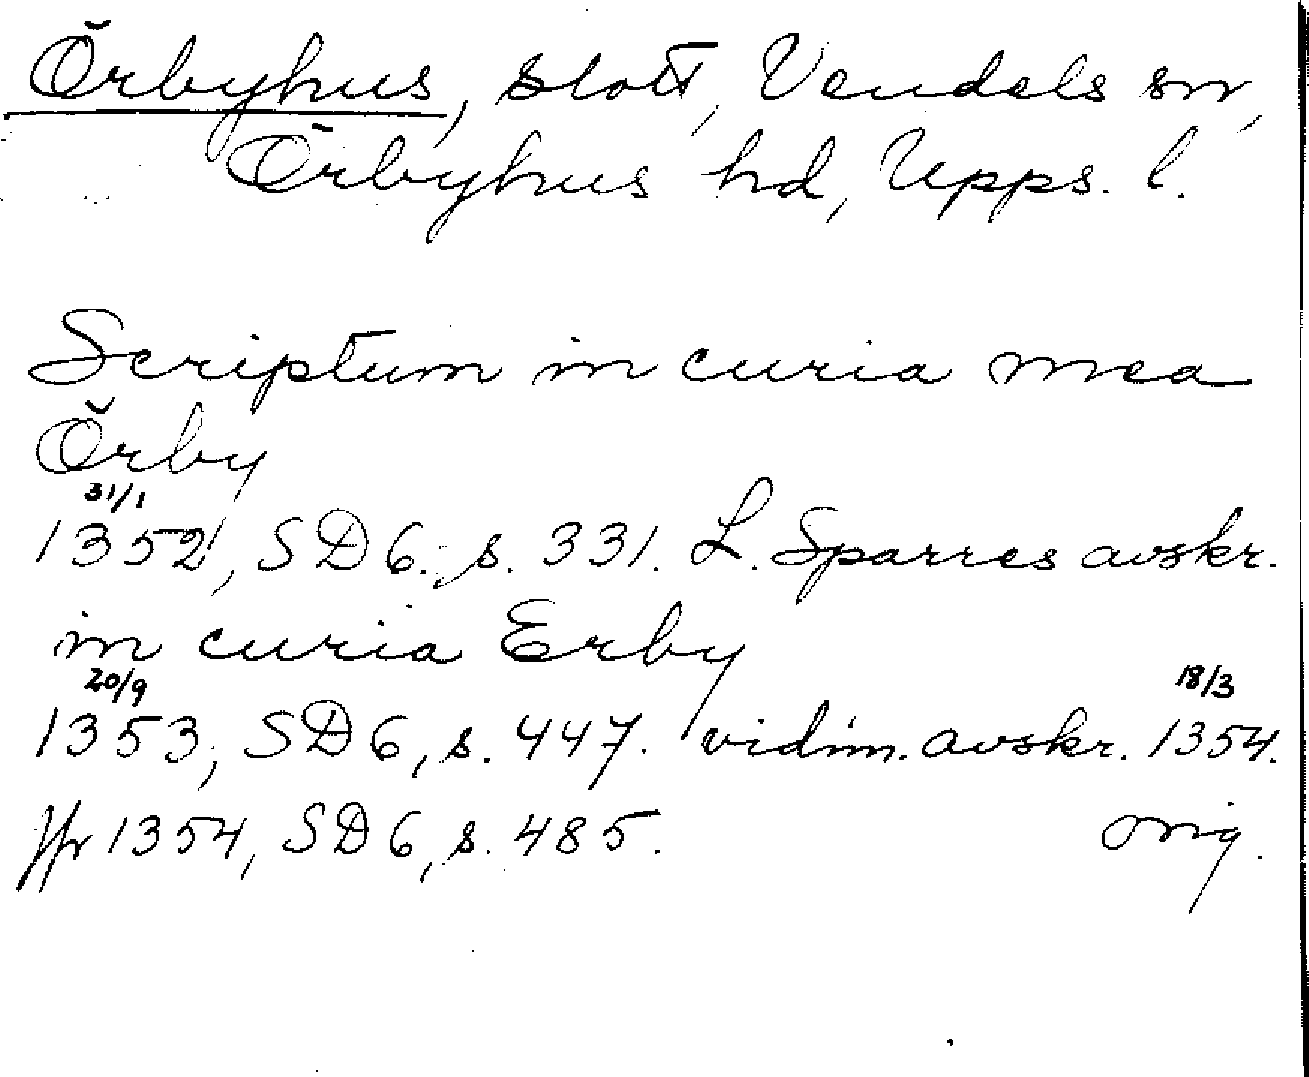 Örbyhus, slott, Vendels sn,
Örbyhus hd, Upps. l.
Scriptum in curia mea
Örby
31/1
1352, SD 6, s. 331. L. Sparres avskr.
in curia Erby
20/9 18/3
1353, SD 6, s. 447. vidim. avskr. 1354.
Jfr 1354, SD 6, s. 485. orig.